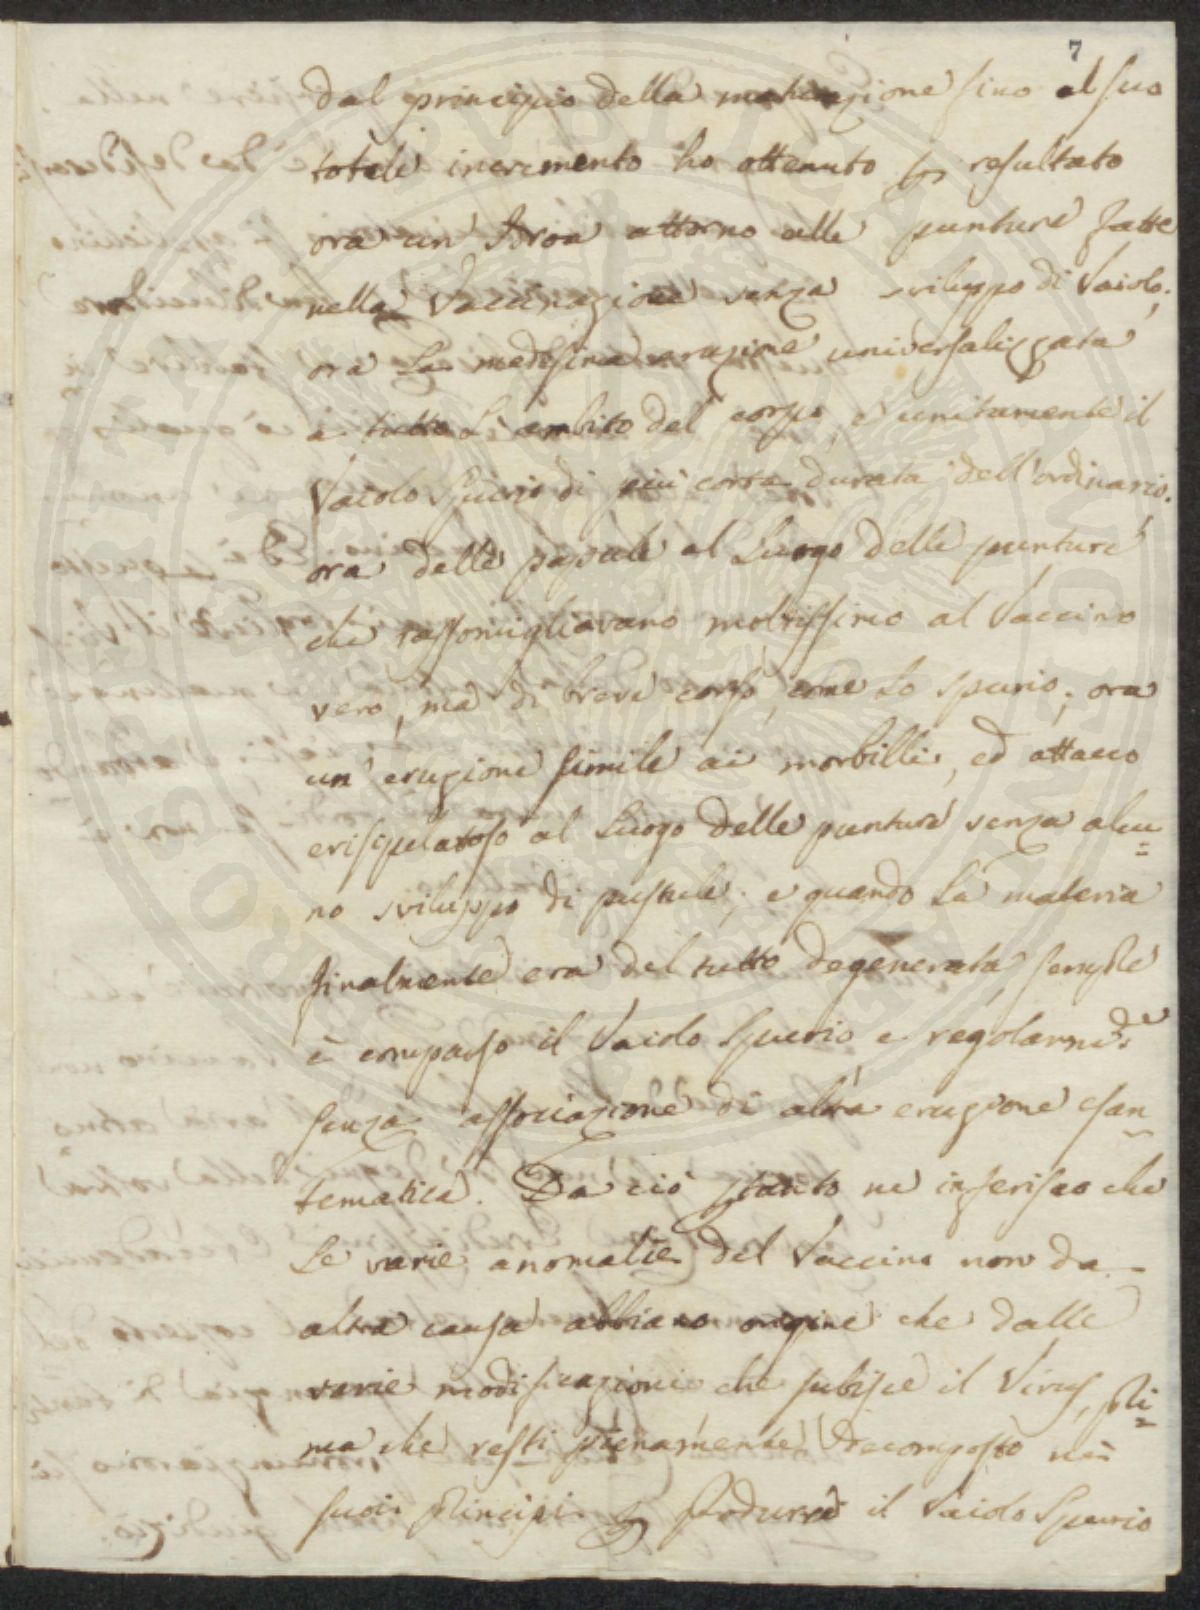 7
dal principio della maturazione sino al suo
totale incremento ho ottenuto per resultato
ora un' Aroa attorno alle punture fatte
nella Vaccinazione senza sviluppo di Vaiolo;
ora la medesima eruzione universalizzata
a tutto l'ambito del corpo, e unitamente il
Vaiolo Spurio di più corta durata dell'ordinario.
ora delle papule al luogo delle punture
che rassomigliavano moltissimo al Vaccino
vero, ma di breve corso, come lo spurio; ora
un' eruzione simile ai morbilli, ed attacco
erisipelatoso al luogo delle punture senza alcu=
no sviluppo di pustule; e quando la materia
finalmente era del tutto degenerata, sempre
è comparso il Vaiolo Spurio e regolarm.e
senza associazione di altra eruzione esan=
tematica. Da ciò pertanto ne inferisco che
le varie anomalie del Vaccino non da
altra causa abbiano origine che dalle
varie modificazioni che subisce il Virus, pri=
ma che resti pienamente decomposto nei
suoi principi per produrre il Vaiolo Spurio